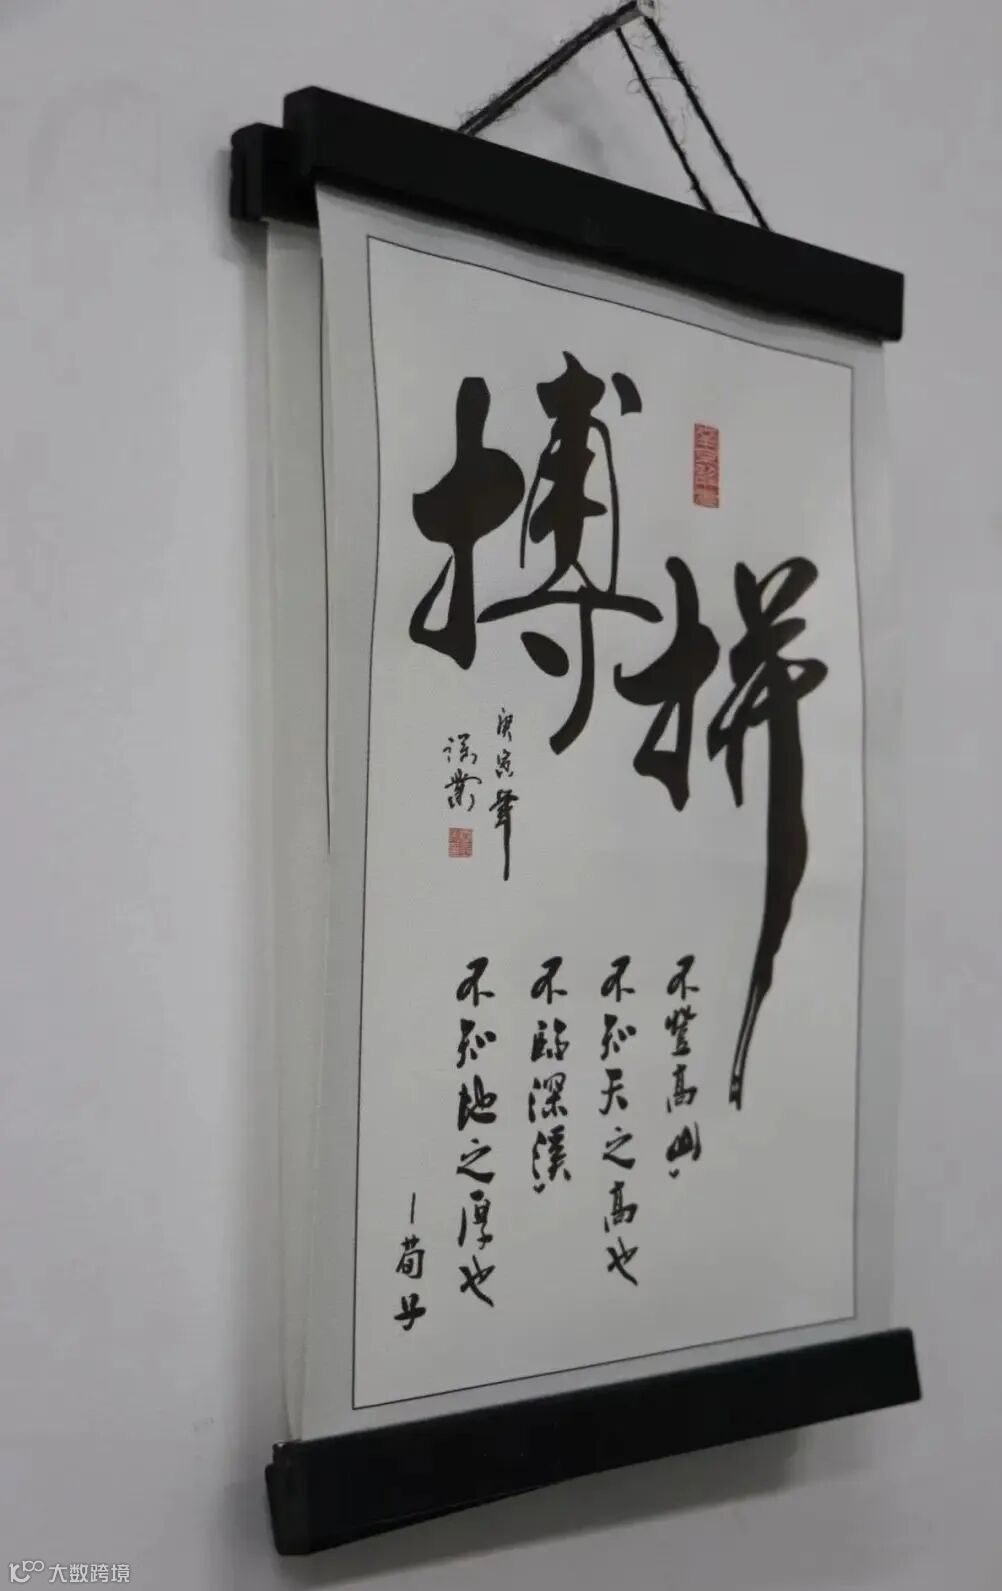 拼搏
庚寅年
不登高山，
不知天之高也
不臨深溪，
不知地之厚也
—荀子
大数跨境